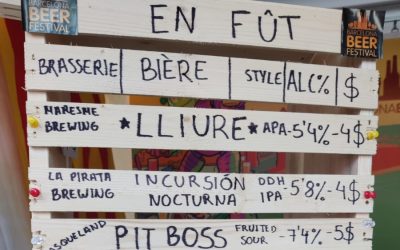 EN FÛT
BARCELONA
BEER
FESTIVAL
BARCELONA
BEER
FESTIVAL
BRASSERIE | BIÈRE | STYLE | ALC% | $
MARESME BREWING *LLIURE* APA - 5'4% - 4$
LA PIRATA BREWING INCURSIÓN NOCTURNA DDH IPA - 5'8% - 4$
PIT BOSS FRUITED SOUR - 7'4% - 5$